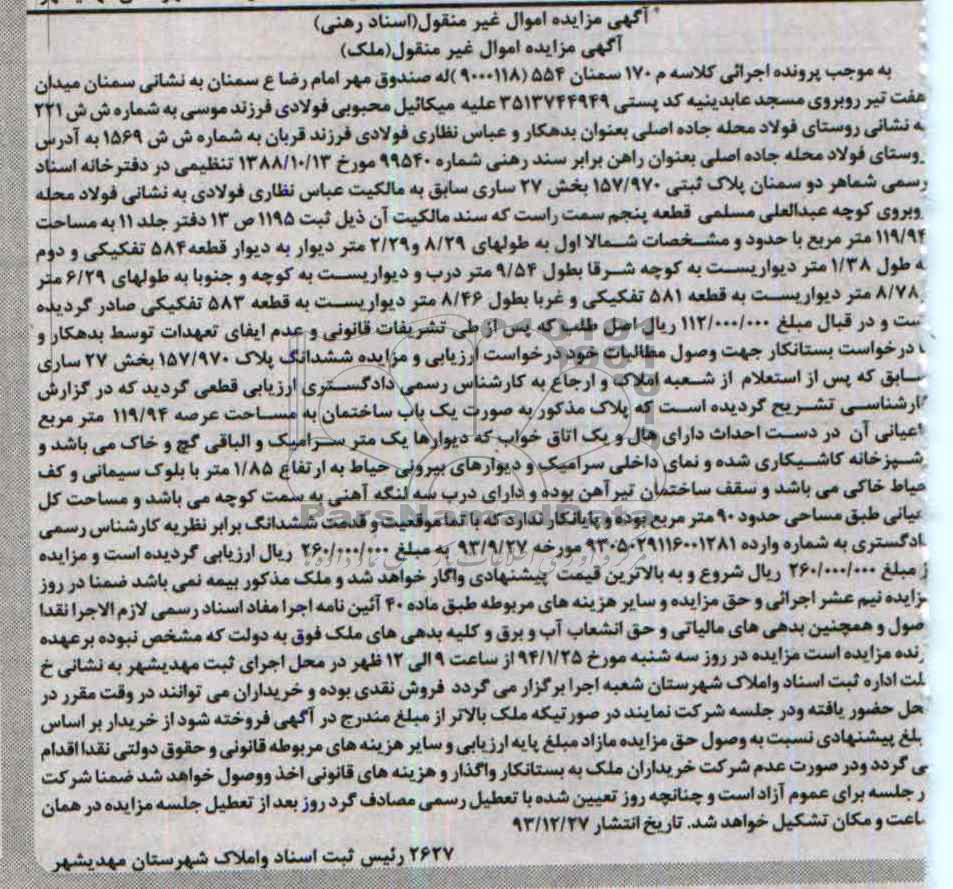 آگهی مزایده اموال غیر منقول(اسناد رهنی)
آگهی مزایده اموال غیر منقول(ملک)
به موجب پرونده اجرائی کلاسه م ۱۷۰ سمنان ۵۵۴ (۹۰۰۰۱۱۸)له صندوق مهر امام رضا ع سمنان به نشانی سمنان میدان
هفت تیر روبروی مسجد عابدینیه کد پستی ۳۵۱۳۷۴۴۹۴۹ علیه میکائیل محبوبی فولادی فرزند موسی به شماره ش ش ۲۲۱
به نشانی روستای فولاد محله جاده اصلی بعنوان بدهکار و عباس نظاری فولادی فرزند قربان به شماره ش ش ۱۵۶۹ به آدرس
روستای فولاد محله جاده اصلی بعنوان راهن برابر سند رهنی شماره ۹۹۵۴۰ مورخ ۱۳۸۸/۱۰/۱۳ تنظیمی در دفترخانه اسناد
رسمی شماهر دو سمنان پلاک ثبتی ۱۵۷/۹۷۰ بخش ۲۷ ساری سابق به مالکیت عباس نظاری فولادی به نشانی فولاد محله
روبروی کوچه عبدالعلی مسلمی قطعه پنجم سمت راست که سند مالکیت آن ذیل ثبت ۱۱۹۵ ص ۱۳ دفتر جلد ۱۱ به مساحت
۱۱۹/۹۴ متر مربع با حدود و مشخصات شمالا اول به طولهای ۸/۲۹ و۲/۲۹ متر دیوار به دیوار قطعه۵۸۴ تفکیکی و دوم
به طول ۱/۳۸ متر دیواریست به کوچه شرقا بطول ۹/۵۴ متر درب و دیواریست به کوچه و جنوبا به طولهای ۶/۲۹ متر
۸/۷۸ متر دیواریست به قطعه ۵۸۱ تفکیکی و غربا بطول ۸/۴۶ متر دیواریست به قطعه ۵۸۳ تفکیکی صادر گردیده
است و در قبال مبلغ ۱۱۲/۰۰۰/۰۰۰ ریال اصل طلب که پس از طی تشریفات قانونی و عدم ایفای تعهدات توسط بدهکار و
درخواست بستانکار جهت وصول مطالبات خود درخواست ارزیابی و مزایده ششدانگ پلاک ۱۵۷/۹۷۰ بخش ۲۷ ساری
سابق که پس از استعلام از شعبه املاک و ارجاع به کارشناس رسمی دادگستری ارزیابی قطعی گردید که در گزارش
کارشناسی تشریح گردیده است که پلاک مذکور به صورت یک باب ساختمان به مساحت عرصه ۱۱۹/۹۴ متر مربع
اعیانی آن در دست احداث دارای هال و یک اتاق خواب که دیوارها یک متر سرامیک و الباقی گچ و خاک می باشد و
آشپزخانه کاشیکاری شده و نمای داخلی سرامیک و دیوارهای بیرونی حیاط به ارتفاع ۱/۸۵ متر با بلوک سیمانی و کف
حیاط خاکی می باشد و سقف ساختمان تیرآهن بوده و دارای درب سه لنگه آهنی به سمت کوچه می باشد و مساحت کل
اعیانی طبق مساحی حدود ۹۰ متر مربع بوده و پایانکار ندارد که با تما موقعیت و قدمت ششدانگ برابر نظریه کارشناس رسمی
دادگستری به شماره وارده ۹۳۰۵۰۲۹۱۱۶۰۰۱۲۸۱ مورخه ۹۳/۹/۲۷ به مبلغ ۲۶۰/۰۰۰/۰۰۰ ریال ارزیابی گردیده است و مزایده
از مبلغ ۲۶۰/۰۰۰/۰۰۰ ریال شروع و به بالاترین قیمت پیشنهادی واگار خواهد شد و ملک مذکور بیمه نمی باشد ضمنا در روز
مزایده نیم عشر اجرائی و حق مزایده و سایر هزینه های مربوطه طبق ماده ۴۰ آئین نامه اجرا مفاد اسناد رسمی لازم الاجرا نقدا
وصول و همچنین بدهی های مالیاتی و حق انشعاب آب و برق و کلیه بدهی های ملک فوق به دولت که مشخص نبوده بر عهده
برنده مزایده است مزایده در روز سه شنبه مورخ ۹۴/۱/۲۵ از ساعت ۹ الی ۱۲ ظهر در محل اجرای ثبت مهدیشهر به نشانی خ
ملت اداره ثبت اسناد واملاک شهرستان شعبه اجرا برگزار می گردد فروش نقدی بوده و خریداران می توانند در وقت مقرر در
محل حضور یافته ودر جلسه شرکت نمایند در صورتیکه ملک بالاتر از مبلغ مندرج در آگهی فروخته شود از خریدار بر اساس
مبلغ پیشنهادی نسبت به وصول حق مزایده مازاد مبلغ پایه ارزیابی و سایر هزینه های مربوطه قانونی و حقوق دولتی نقدا اقدام
می گردد ودر صورت عدم شرکت خریداران ملک به بستانکار واگذار و هزینه های قانونی اخذ ووصول خواهد شد ضمنا شرکت
در جلسه برای عموم آزاد است و چنانچه روز تعیین شده با تعطیل رسمی مصادف گرد روز بعد از تعطیل جلسه مزایده در همان
ساعت و مکان تشکیل خواهد شد. تاریخ انتشار ۹۳/۱۲/۲۷
۲۶۲۷ رئیس ثبت اسناد واملاک شهرستان مهدیشهر
ParsNamadData